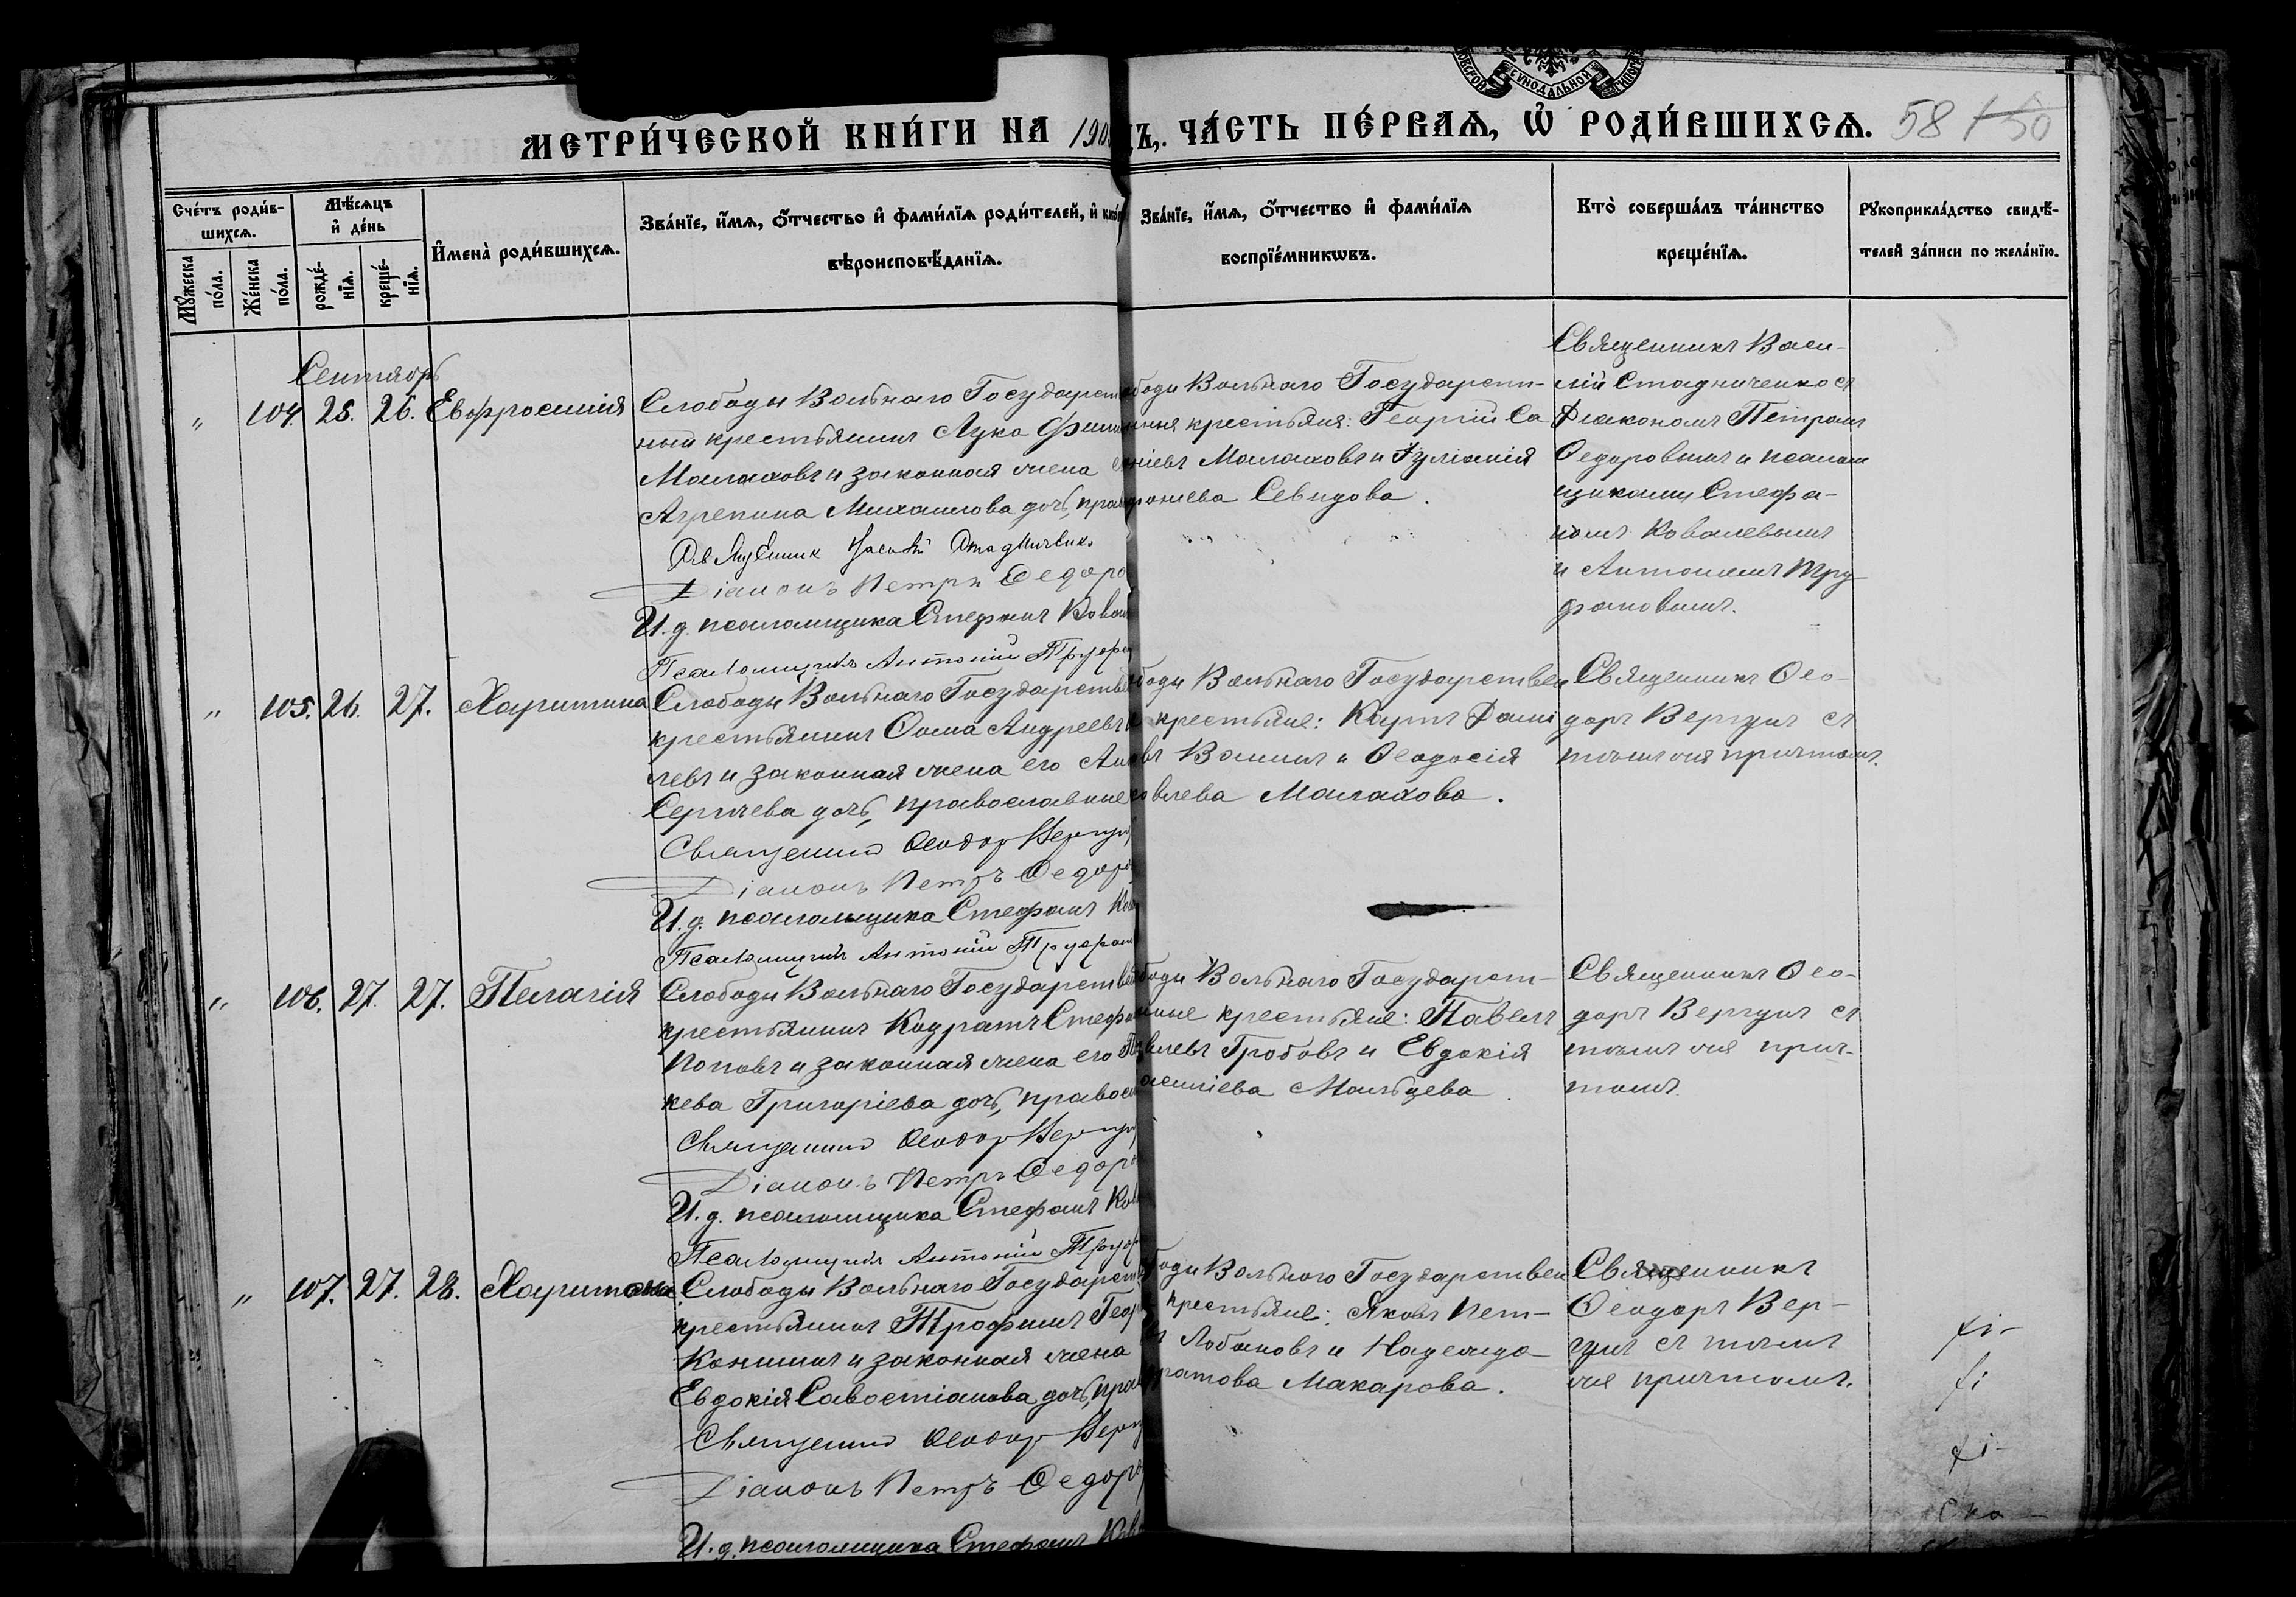 МЕТРИ́ЧЕСКОЙ КНИ́ГИ НА 190
ЧА́СТЬ ПЕ́РВАѦ, Ѡ҆ РОДИ́ВШИХСѦ. 58
СѴНОДАЛЬНОЙ
Сче́тъ роди́в-
шихсѧ.
Мꙋ́жеска по́ла.
Же́нска по́ла.
Мѣ́сѧцъ и҆ де́нь
рожде́-нїѧ.
креще́-нїѧ.
И҆мена̀ роди́вшихсѧ.
Зва́нїе, и҆́мѧ, ѻ҆́тчество и҆ фами́лїѧ роди́телей, и҆
вѣроисповѣ́данїѧ.
Зва́нїе, и҆́мѧ, ѻ҆́тчество и҆ фами́лїѧ
воспрїе́мникѡвъ.
Кто̀ соверша́лъ та́инство
креще́нїѧ.
Рꙋкоприкла́дство свидѣ́-
телей за́писи по жела́нїю.
Сентябрь
" 104. 25. 26. Евфросинія
Слободы Вольнаго Государст
ный крестьянинъ Лука
Малаховъ и законная жена
Агрепина Михаилова дочь, прав
Священник Васілій Стадниченко
Діаконъ Петръ Федоро
И. д. псаломщика Стефанъ Ковал
Псаломщикъ Антоній Труфан
боды Вольнаго Государст-
нныя крестьяня: Георгій Са
Малаховъ и Іуліанія
Севидова.
Священникъ Васи-
лій Стадниченко съ
Діакономъ Петромъ
Федоровымъ и псалом
щиками Стефа-
номъ Ковалевымъ
и Антоніемъ Тру-
фановымъ.
" 105. 26. 27. Харитина
Слободы Вольнаго Государствен
крестьянинъ Фома Андреевъ
левъ и законная жена его
Сергѣева дочь, православные
Священник Феодор Вергун
Діаконъ Петръ Федоро
И. д. псаломщика Стефанъ Ков
Псаломщикъ Антоній Труфан
боды Вольнаго Государствен
крестьяне: Карпъ Дани
въ Ванинъ и Феодосія
овлева Малахова.
Священникъ Фео-
доръ Вергунъ съ
тѣмъ же причтомъ.
" 106. 27. 27. Пелагія
Слободы Вольнаго Государствен
крестьянинъ Кодратъ Стефа
Поповъ и законная жена его
кева Григоріева дочь, правосл
Священник Феодор Вергун
Діаконъ Петръ Федоро
И. д. псаломщика Стефанъ Ков
Псаломщикъ Антоній Труф
боды Вольнаго Государст-
нные крестьяне: Павелъ
влевъ Гробовъ и Евдокія
асиліева Мальцева.
Священникъ Фео-
доръ Вергунъ съ
тѣмъ же прич-
томъ.
" 107. 27. 28. Харитина
Слободы Вольнаго Государст
крестьянинъ Трофимъ Геор
Конишинъ и законная жена
Евдокія Савостіанова дочь, прав
Священник Феодор Верг
Діаконъ Петръ Федоро
И. д. псаломщика Стефанъ Ков
оды Вольнаго Государствен
крестьяне: Яковъ Пет-
Лобановъ и Надежда
ратова Макарова.
Священникъ
Феодоръ Вер-
гунъ съ тѣмъ
же причтомъ.